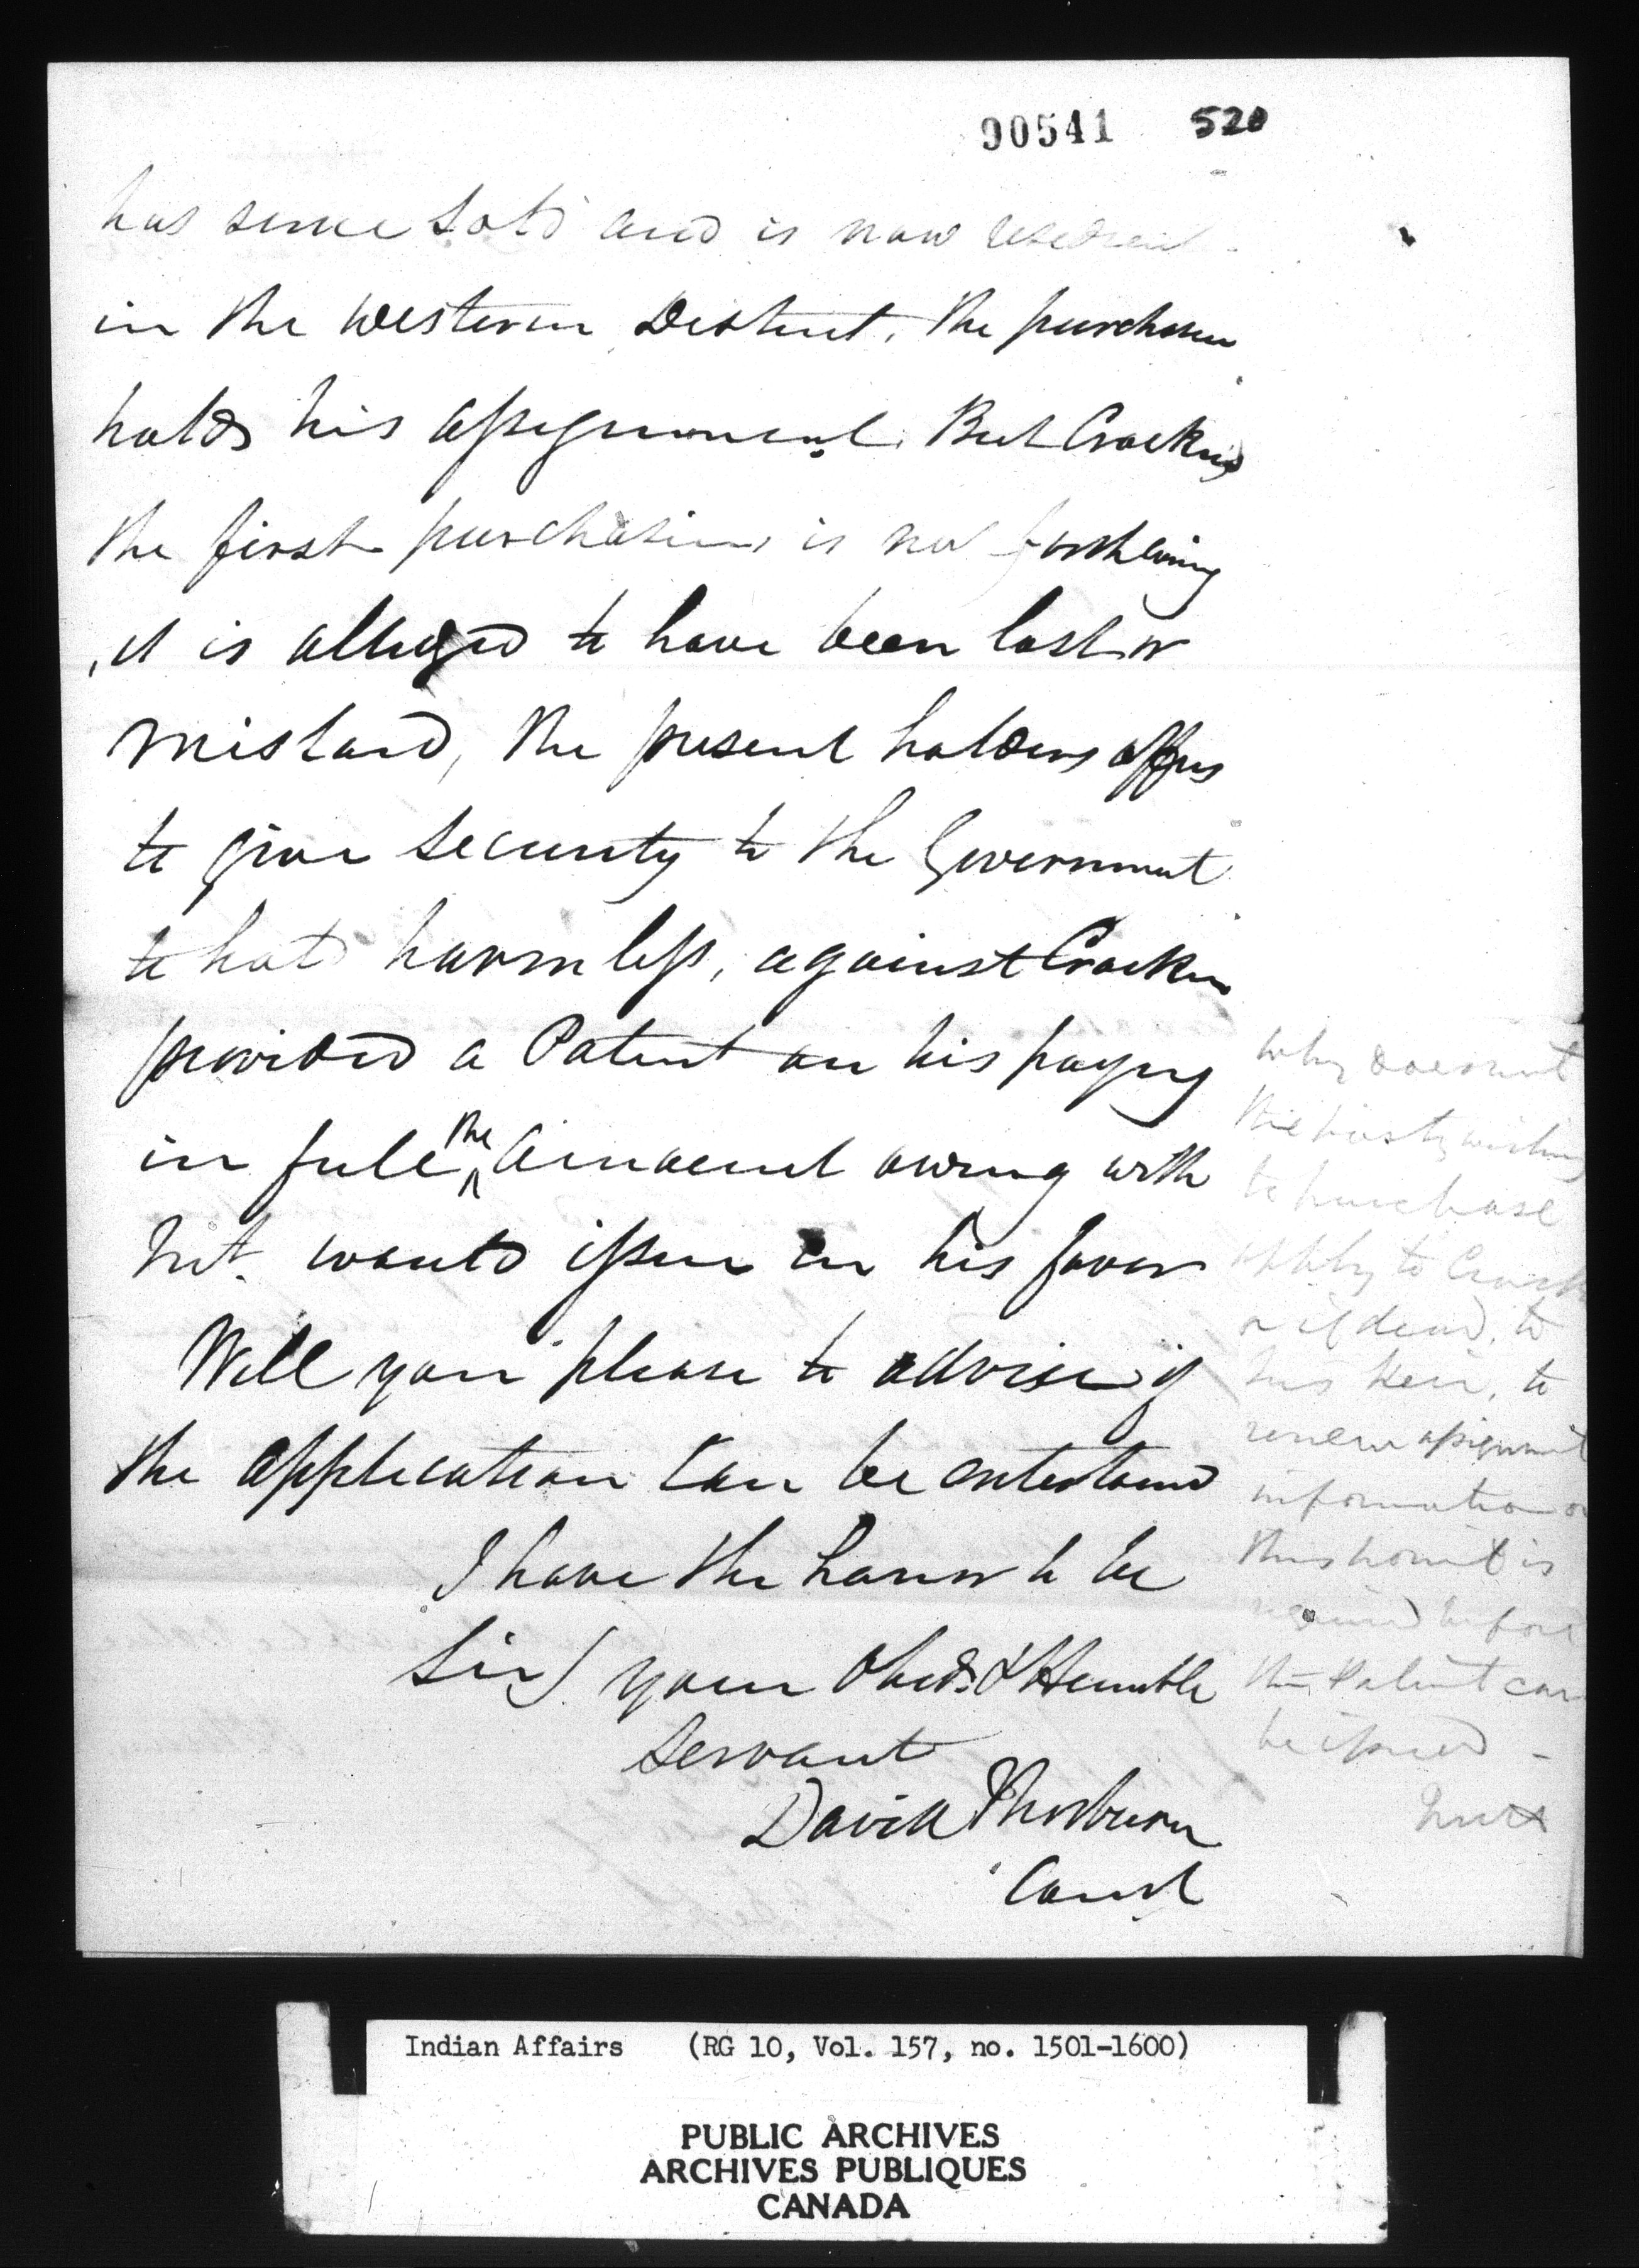 90541 520
has since sold and is now resident
in the Western District. The purchaser
holds his assignment. But Crackins
the first purchasers is not forthcoming
it is alleged to have been lost or
mislaid, the present holders offers
to give security to the Government
to hold harmless, against Crackins
provided a Patent on his paying
in full the amount owing with
Int. would issue in his favor
Will you please to advise if
the application can be entertained
I have the honor to be
Sir your Obed. & Humble
Servant
David Thorburn
Comr
why does not
the party wishing
to purchase
apply to Crack
or if dead, to
his heir, to
renew assignment
information on
this point is
required before
the Patent can
be issued -
Indian Affairs (RG 10, Vol. 157, no. 1501-1600)
PUBLIC ARCHIVES
ARCHIVES PUBLIQUES
CANADA